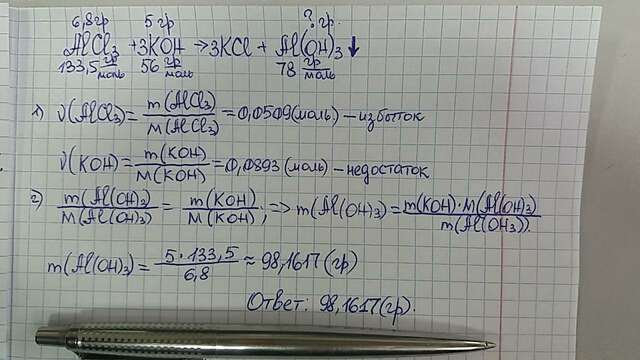 6,8гр 5 гр ? гр.
AlCl₃ + 3KOH → 3KCl + Al(OH)₃ ↓
133,5 гр/моль 56 гр/моль 78 гр/моль
1) ν(AlCl₃) = m(AlCl₃)/M(AlCl₃) = 0,0509(моль) – избыток
ν(KOH) = m(KOH)/M(KOH) = 0,0893 (моль) – недостаток
2) m(Al(OH)₃)/M(Al(OH)₃) = m(KOH)/M(KOH); => m(Al(OH)₃) = m(KOH)·M(Al(OH)₃)/m(Al(OH₃)).
m(Al(OH)₃) = 5·133,5/6,8 ≈ 98,1617 (гр)
Ответ: 98,1617(гр).